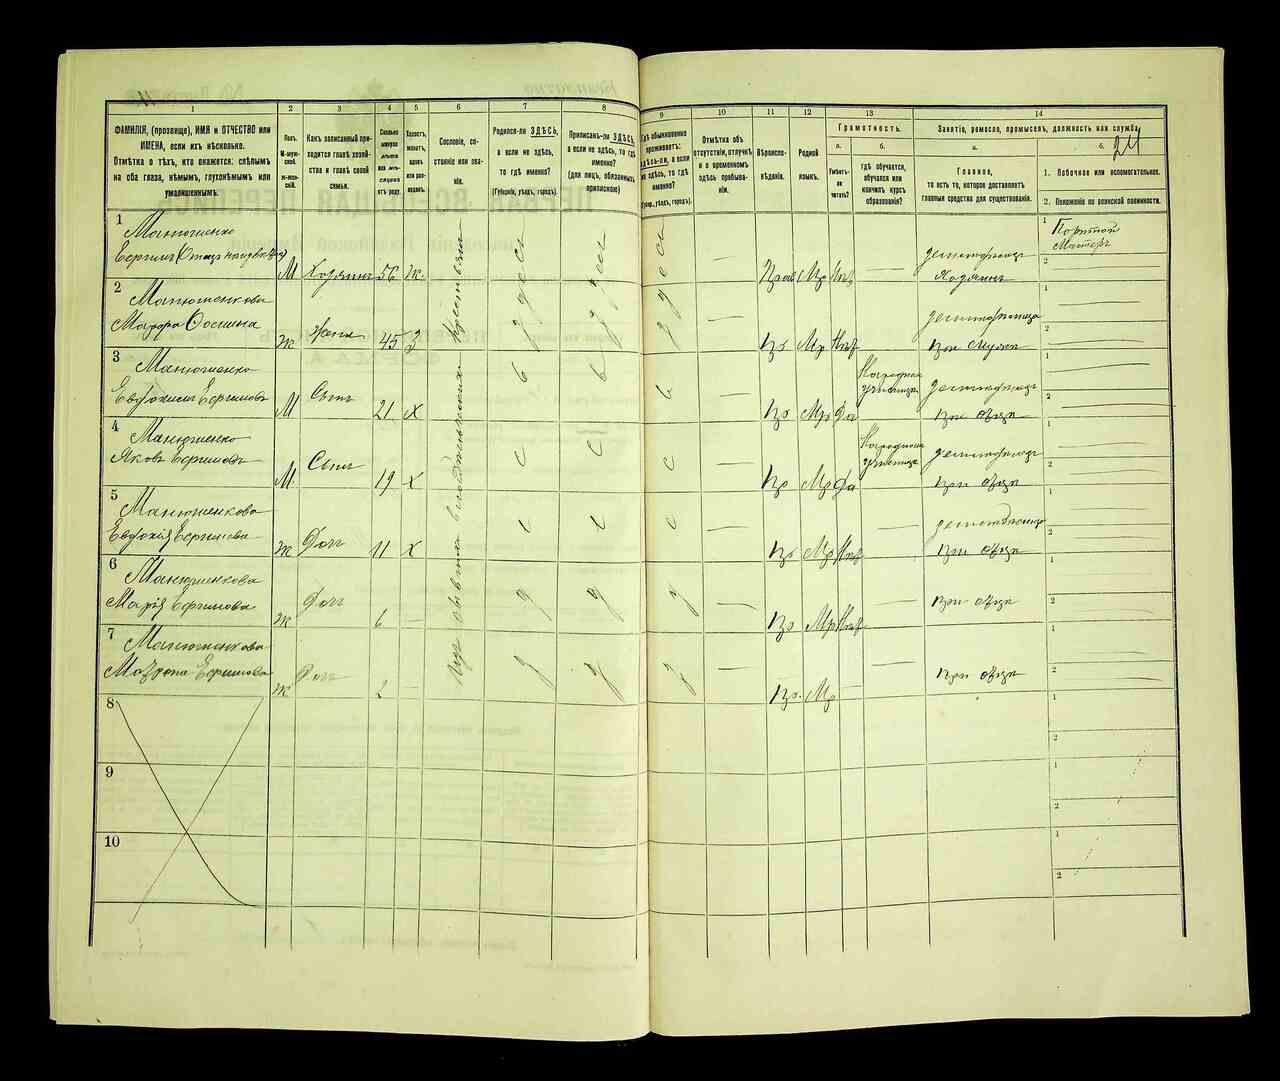 1
2
3
4
5
6
7
8
9
10
11
12
13
14
ФАМИЛІЯ, (прозвище), ИМЯ и ОТЧЕСТВО или
ИМЕНА, если ихъ нѣсколько.
Отмѣтка о тѣхъ, кто окажется: слѣпымъ
на оба глаза, нѣмымъ, глухонѣмымъ или
умалишеннымъ.
Полъ.
М-мужской.
Ж-женскій.
Какъ записанный при-
ходится главѣ хозяй-
ства и главѣ своей
семьи.
Сколько
минуло
лѣтъ
или мѣ-
сяцевъ
отъ роду.
Холостъ,
женатъ,
вдовъ
или раз-
веденъ.
Сословіе, со-
стояніе или зва-
ніе.
Родился-ли ЗДѢСЬ,
а если не здѣсь,
то гдѣ именно?
(Губернія, уѣздъ, городъ).
Приписанъ-ли ЗДѢСЬ,
а если не здѣсь, то гдѣ
именно?
(для лицъ, обязанныхъ
припискою)
Гдѣ обыкновенно
проживаетъ:
здѣсь-ли, а если
не здѣсь, то гдѣ
именно?
(Губер., уѣздъ, городъ).
Отмѣтка объ
отсутствіи, отлучкѣ
и о временномъ
здѣсь пребыва-
ніи.
Вѣроиспо-
вѣданіе.
Родной
языкъ.
Грамотность.
а.
б.
Умѣетъ-
ли
читать?
гдѣ обучается,
обучался или
кончилъ курсъ
образованія?
Занятіе, ремесло, промыселъ, должность или служба
а.
б.
24
Главное,
то есть то, которое доставляетъ
главныя средства для существованія.
1. Побочное или вспомогательное.
2. Положеніе по воинской повинности.
1
Манюшенко
М Хозяинъ 56 ж.
Прав Мр Нѣт —
земледѣлецъ
Хозяинъ
1 Портной
Мастеръ
2
2
Манюшенкова
Ж Жена 45 З
Пр Мр Нѣт
земледѣлица
при мужѣ
1
2
3
Манюшенко
М Сынъ 21 Х
Пр Мр Да
Народное
училище
земледѣлецъ
при отцѣ
1
2
4
Манюшенко
Яковъ Ефимовъ
М Сынъ 19 Х
Пр Мр Да
Народное
училище
земледѣлецъ
при отцѣ
1
2
5
Манюшенкова
Евдокія Ефимова
Ж Дочь 11 Х
Пр Мр Нѣт —
земледѣлица
при отцѣ
1
2
6
Манюшенкова
Марія Ефимова
Ж Дочь 6 —
Пр Мр Нѣт —
при отцѣ
1
2
7
Манюшенкова
Ж Дочь 2 —
Пр. Мр —
при отцѣ
1
2
8
1
2
9
1
2
10
1
2